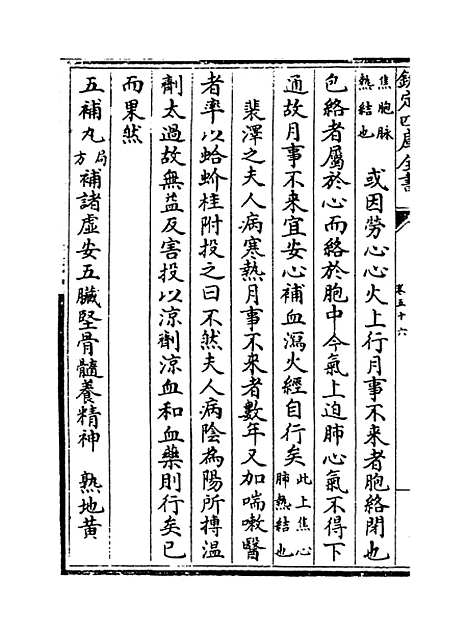 欽定四庫全書
卷五十六
焦胞脉
熱結也
或因勞心心火上行月事不来者胞絡閉也
包絡者屬於心而絡於胞中今氣上迫肺心氣不得下
通故月事不来宜安心補血瀉火經自行矣
此上焦心
肺熱結也
裴澤之夫人病寒熱月事不來者數年又加喘嗽醫
者率以蛤蚧桂附投之曰不然夫人病陰為陽所搏温
劑太過故無益反害投以涼劑涼血和血藥則行矣已
而果然
五補丸
局
方
補諸虛安五臟堅骨髓養精神 熟地黄